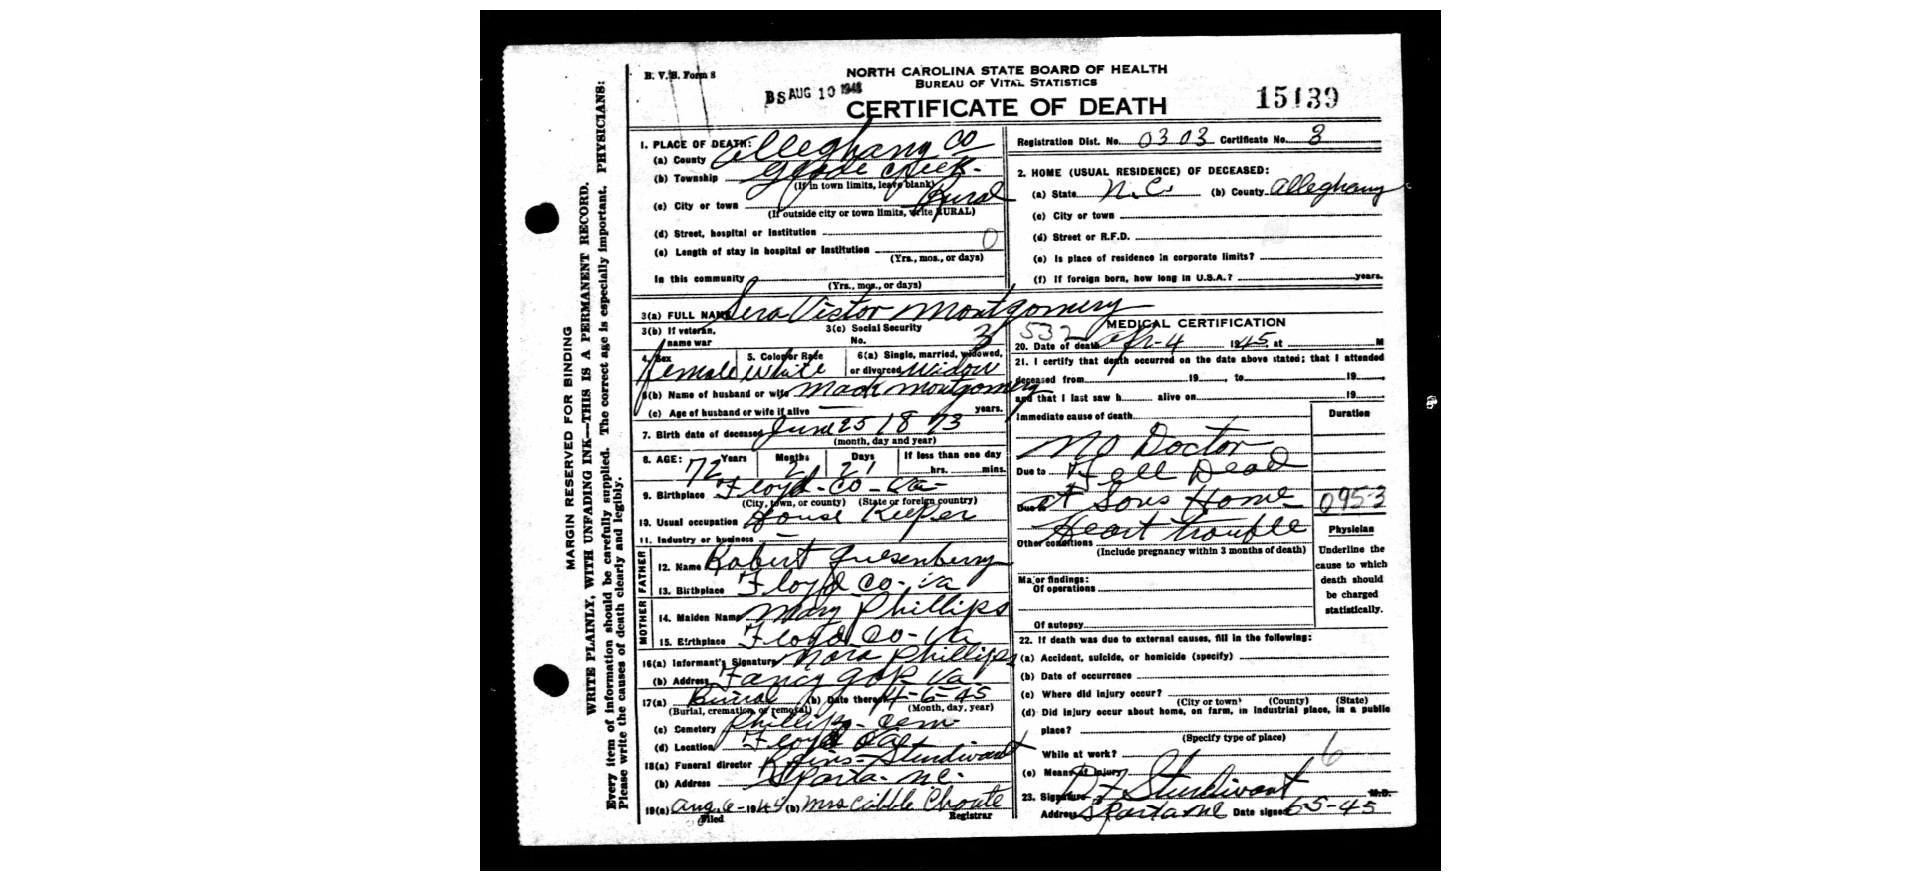 B. V. S. Form 8
NORTH CAROLINA STATE BOARD OF HEALTH
BUREAU OF VITAL STATISTICS
BS AUG 10 1948
CERTIFICATE OF DEATH
15139
MARGIN RESERVED FOR BINDING
WRITE PLAINLY, WITH UNFADING INK—THIS IS A PERMANENT RECORD.
Every item of information should be carefully supplied. The correct age is especially important. PHYSICIANS:
Please write the causes of death clearly and legibly.
1. PLACE OF DEATH:
(a) County Alleghany Co
(b) Township Glade Creek
(If in town limits, leave blank)
(c) City or town Rural
(If outside city or town limits, write RURAL)
(d) Street, hospital or institution
(e) Length of stay in hospital or institution 0
(Yrs., mos., or days)
In this community
(Yrs., mos., or days)
Registration Dist. No. 0303 Certificate No. 3
2. HOME (USUAL RESIDENCE) OF DECEASED:
(a) State N.C. (b) County Alleghany
(c) City or town
(d) Street or R.F.D.
(e) Is place of residence in corporate limits?
(f) If foreign born, how long in U.S.A.? years.
3(a) FULL NAME Sera Victor Montgomery
3(b) If veteran, name war
3(c) Social Security No. 3
4. Sex Female
5. Color or Race White
6(a) Single, married, widowed, or divorced Widow
6(b) Name of husband or wife Mack Montgomery
(c) Age of husband or wife if alive — years.
7. Birth date of deceased June 25 1873
(month, day and year)
8. AGE: 72 Years Months 21 Days If less than one day
hrs. mins.
9. Birthplace Floyd - Co - Va -
(City, town, or county) (State or foreign country)
10. Usual occupation House Keeper
11. Industry or business —
FATHER
12. Name Robert Quesenberry
13. Birthplace Floyd Co - Va
MOTHER
14. Maiden Name Mary Phillips
15. Birthplace Floyd Co - Va
16(a) Informant's Signature Nora Phillips
(b) Address Fancy Gap Va
17(a) Burial (b) Date thereof 4-6-45
(Burial, cremation, or removal) (Month, day, year)
(c) Cemetery Phillips - Cem -
(d) Location Floyd
18(a) Funeral director Reins - Sturdivant
(b) Address Sparta - NC.
19(a) Aug 6 - 1945 (b) Mrs Choate
Filed Registrar
532 MEDICAL CERTIFICATION
20. Date of death Apr-4 1945, at M
21. I certify that death occurred on the date above stated; that I attended
deceased from 19 , to 19
and that I last saw h alive on 19
Immediate cause of death Duration
No Doctor
Due to Fell Dead
Due to at Sons Home 095-3
Heart trouble
Other conditions
(Include pregnancy within 3 months of death)
Major findings:
Of operations
Of autopsy
Physician
Underline the cause to which death should be charged statistically.
22. If death was due to external causes, fill in the following:
(a) Accident, suicide, or homicide (specify)
(b) Date of occurrence
(c) Where did injury occur?
(City or town) (County) (State)
(d) Did injury occur about home, on farm, in industrial place, in a public
place?
(Specify type of place)
While at work? 6
(e) Means of injury
23. Signature Sturdivant M.D.
Address Sparta NC Date signed 6 5-45